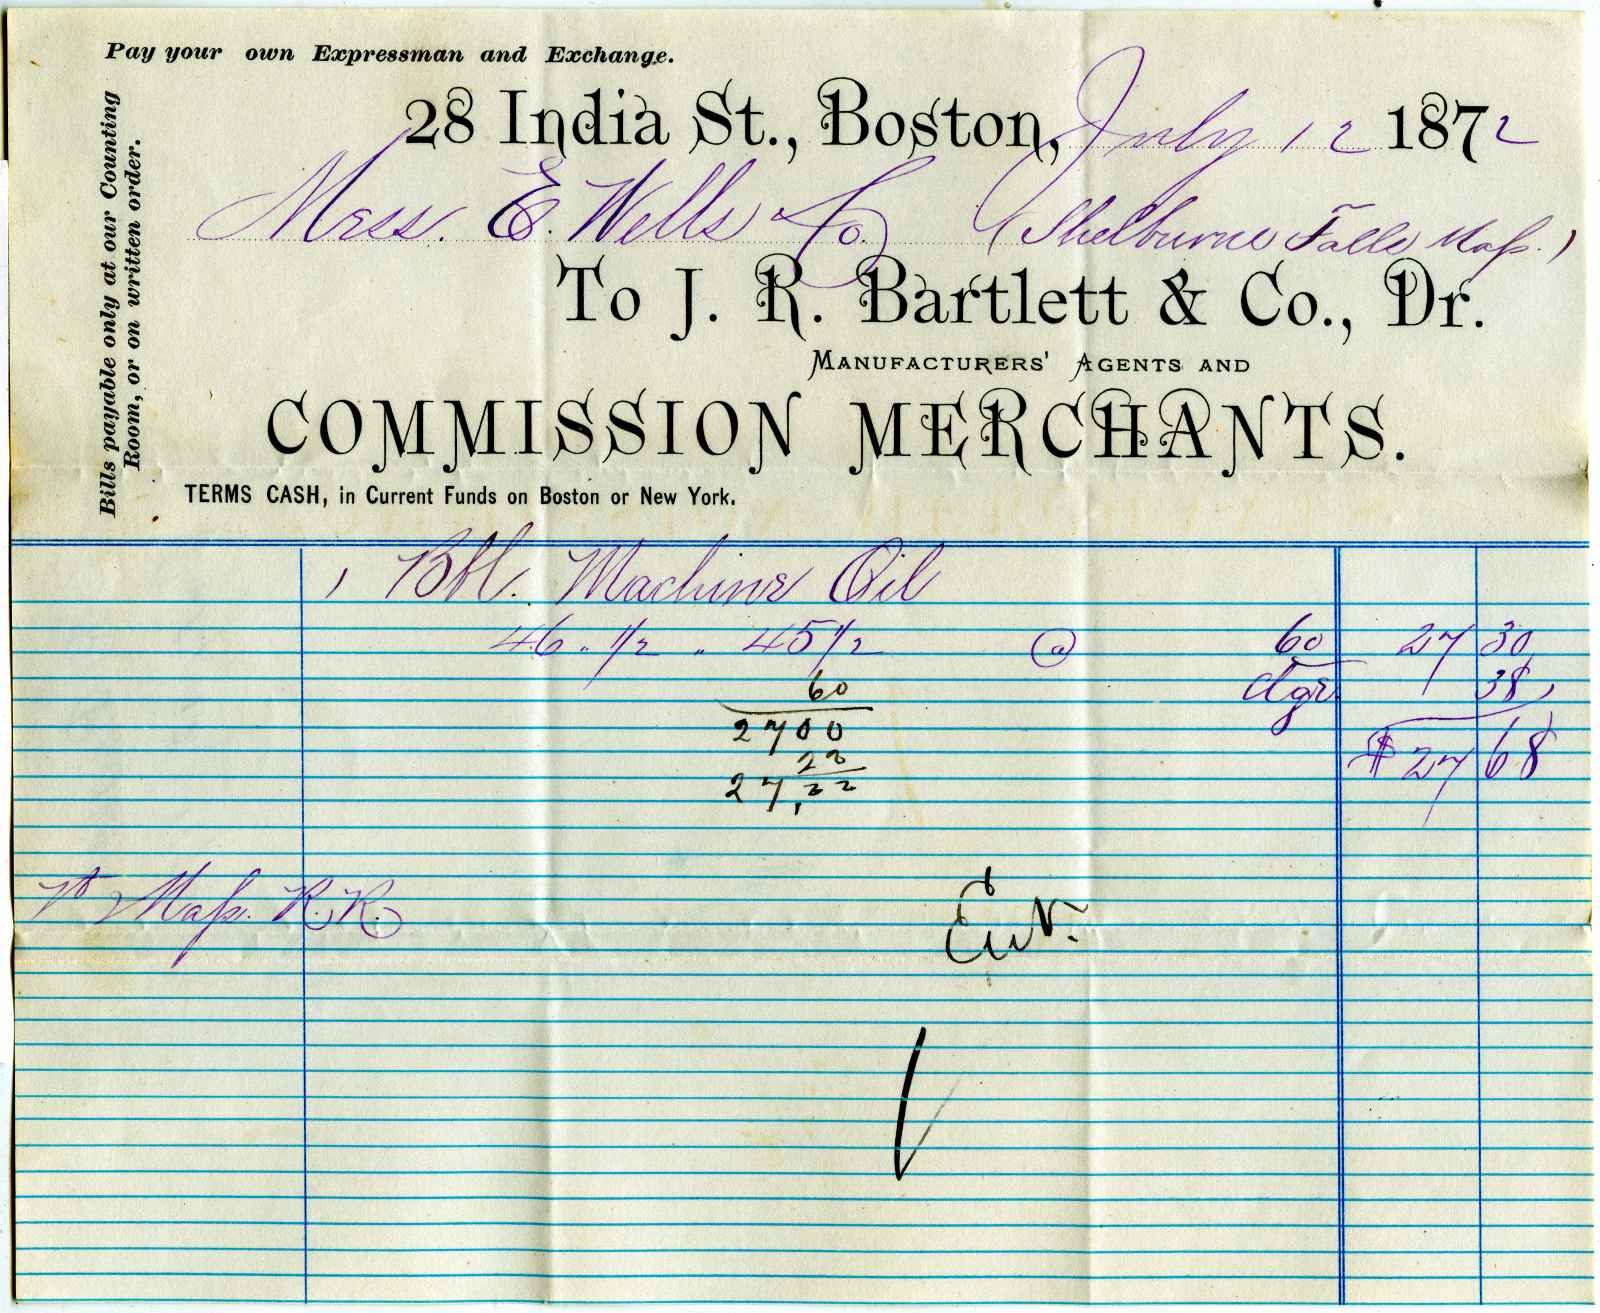 Pay your own Expressman and Exchange.
Bills payable only at our Counting
Room, or on written order.
28 India St., Boston, July 12 1872
Mess. E. Wells & Co. (Shelburne Falls Mass.)
To J. R. Bartlett & Co., Dr.
MANUFACTURERS' AGENTS AND
COMMISSION MERCHANTS.
TERMS CASH, in Current Funds on Boston or New York.
1 Bbl. Machine Oil
46. 1/2 " 45 1/2 @ 60 27 30
60 dgr 38
2700
$27 68
22
27,22
Mass. R.R.
Ent.